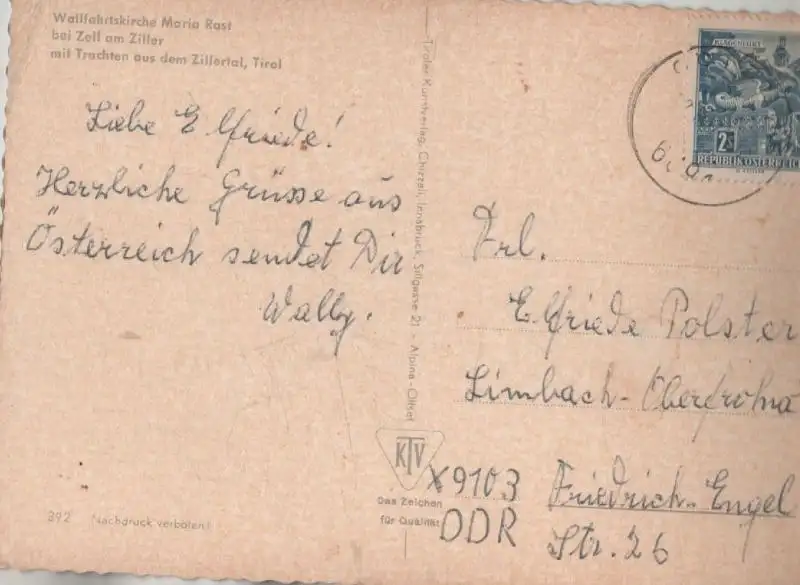 Wallfahrtskirche Maria Rast
bei Zell am Ziller
mit Trachten aus dem Zillertal, Tirol
Liebe Elfriede!
Herzliche Grüsse aus
Österreich sendet Dir
Wally.
392 Nachdruck verboten!
Tiroler Kunstverlag, Chizzali, Innsbruck, Sillgasse 21 - Alpina-Offset
KTV
Das Zeichen
für Qualität
KLAGENFURT
2S
REPUBLIK ÖSTERREICH
Frl.
Elfriede Polster
Limbach-Oberfrohna
X9103 Friedrich-Engel
DDR Str. 26